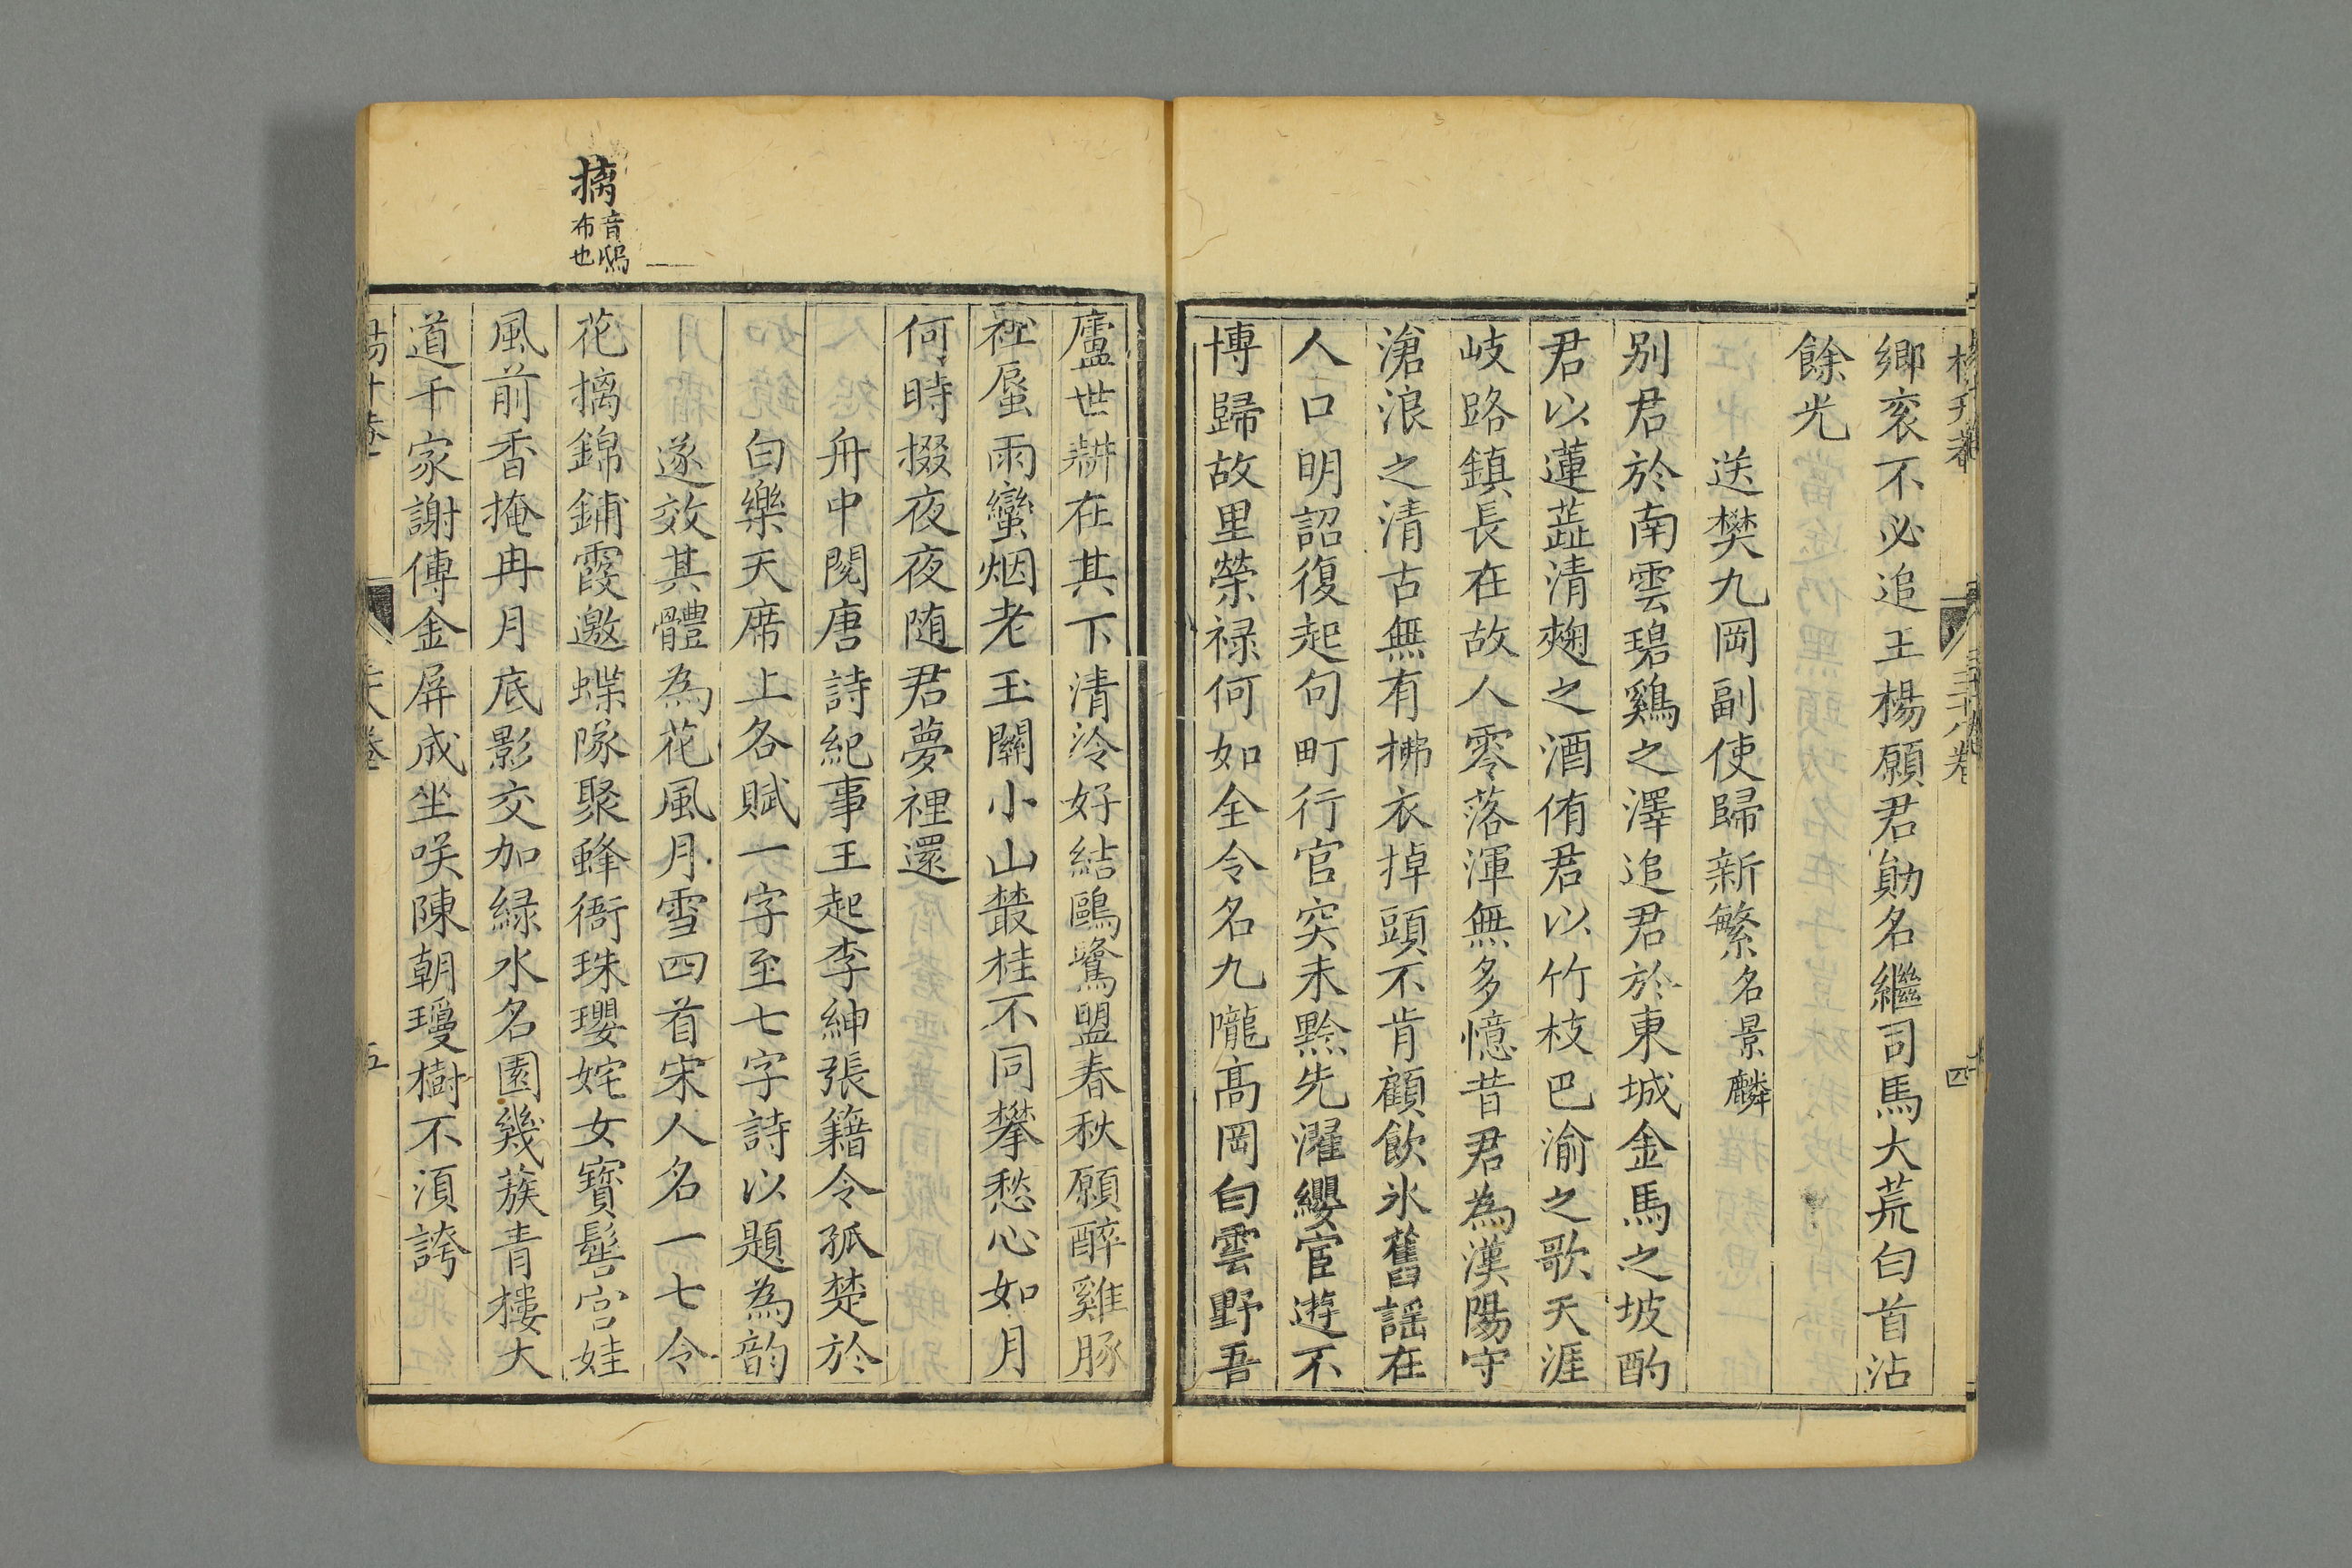 鄉衮不必追王楊願君勛名繼司馬大荒白首沾
餘光
送樊九岡副使歸新繁名景麟
别君於南雲碧鷄之澤追君於東城金馬之坡酌
君以蓮蘂清麹之酒侑君以竹枝巴渝之歌天涯
岐路鎮長在故人零落渾無多憶昔君為漢陽守
滄浪之清古無有拂衣掉頭不肯顧飲氷舊謡在
人口明詔復起句町行官突未黔先濯纓宦遊不
博歸故里榮禄何如全令名九隴髙岡白雲野吾
廬世耕在其下清泠好結鷗鷺盟春秋願醉雞豚
社蜃雨蠻烟老玉關小山叢桂不同攀愁心如月
何時掇夜夜随君夢裡還
舟中閱唐詩紀事王起李紳張籍令狐楚於
白樂天席上各賦一字至七字詩以題為韵
遂效其體為花風月雪四首宋人名一七令
摛音鴟布也
花摛錦鋪霞邀蝶隊聚蜂衙珠瓔姹女寳髻宫娃
風前香掩冉月底影交加緑水名園幾蔟青樓大
道千家謝傅金屏成坐咲陳朝瓊樹不湏誇
五
四